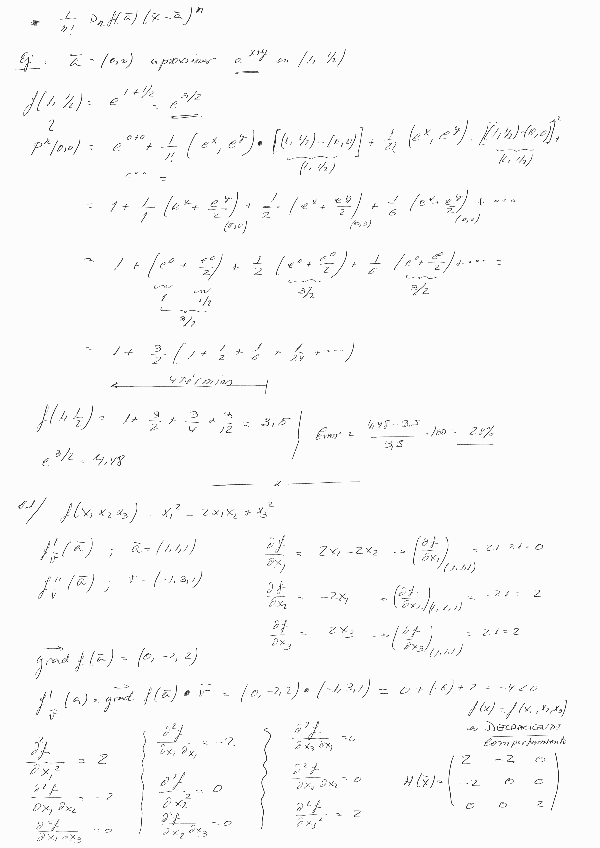 * 1/n! Dn f(ā) (x̄ - ā)^n
Ej: ā = (0,0) aproximar e^{x+y} en (1, 1/2)
f(1, 1/2) = e^{1+1/2} = e^{3/2}
P^n(0,0) = e^{0+0} + 1/1! (e^x, e^y) • [(1, 1/2) - (0,0)] + 1/2! (e^x, e^y) · [(1, 1/2) - (0,0)]^2 +
(1, 1/2) (1, 1/2)
= 1 + 1/1 (e^x + e^y/2)(0,0) + 1/2 · (e^x + e^y/2)(0,0) + 1/6 (e^x + e^y/2)(0,0) + ....
= 1 + (e^0 + e^0/2) + 1/2 (e^0 + e^0/2) + 1/6 (e^0 + e^0/2) + .... =
1 1/2 3/2 3/2
3/2
= 1 + 3/2 · (1 + 1/2 + 1/6 + 1/24 + ...)
4 términos
f(1, 1/2) = 1 + 3/2 + 3/4 + 3/12 = 3,5 | Error = (4,48 - 3,5)/3,5 · 100 = 28%
e^{3/2} = 4,48
f(x1 x2 x3) = x1^2 - 2x1x2 + x3^2
f'_v̄(ā) ; ā = (1,1,1) ∂f/∂x1 = 2x1 - 2x2 → (∂f/∂x1)(1,1,1) = 2·1 - 2·1 = 0
f''_v̄(ā) ; v̄ = (-1,3,1) ∂f/∂x2 = -2x1 → (∂f/∂x2)(1,1,1) = -2·1 = -2
∂f/∂x3 = 2x3 → (∂f/∂x3)(1,1,1) = 2·1 = 2
grad f(ā) = (0, -2, 2)
f'_v̄(a) = grad f(ā) • v̄ = (0, -2, 2) • (-1, 3, 1) = 0 + (-6) + 2 = -4 < 0
f(x) = f(x1, x2, x3)
es DECRECIENTE
comportamiento
∂²f/∂x1² = 2 ∂²f/∂x2 ∂x1 = -2 ∂²f/∂x3 ∂x1 = 0
∂²f/∂x1 ∂x2 = -2 ∂²f/∂x2² = 0 ∂²f/∂x3 ∂x2 = 0
∂²f/∂x1 ∂x3 = 0 ∂²f/∂x2 ∂x3 = 0 ∂²f/∂x3² = 2
H(x̄) = ( 2 -2 0
-2 0 0
0 0 2 )